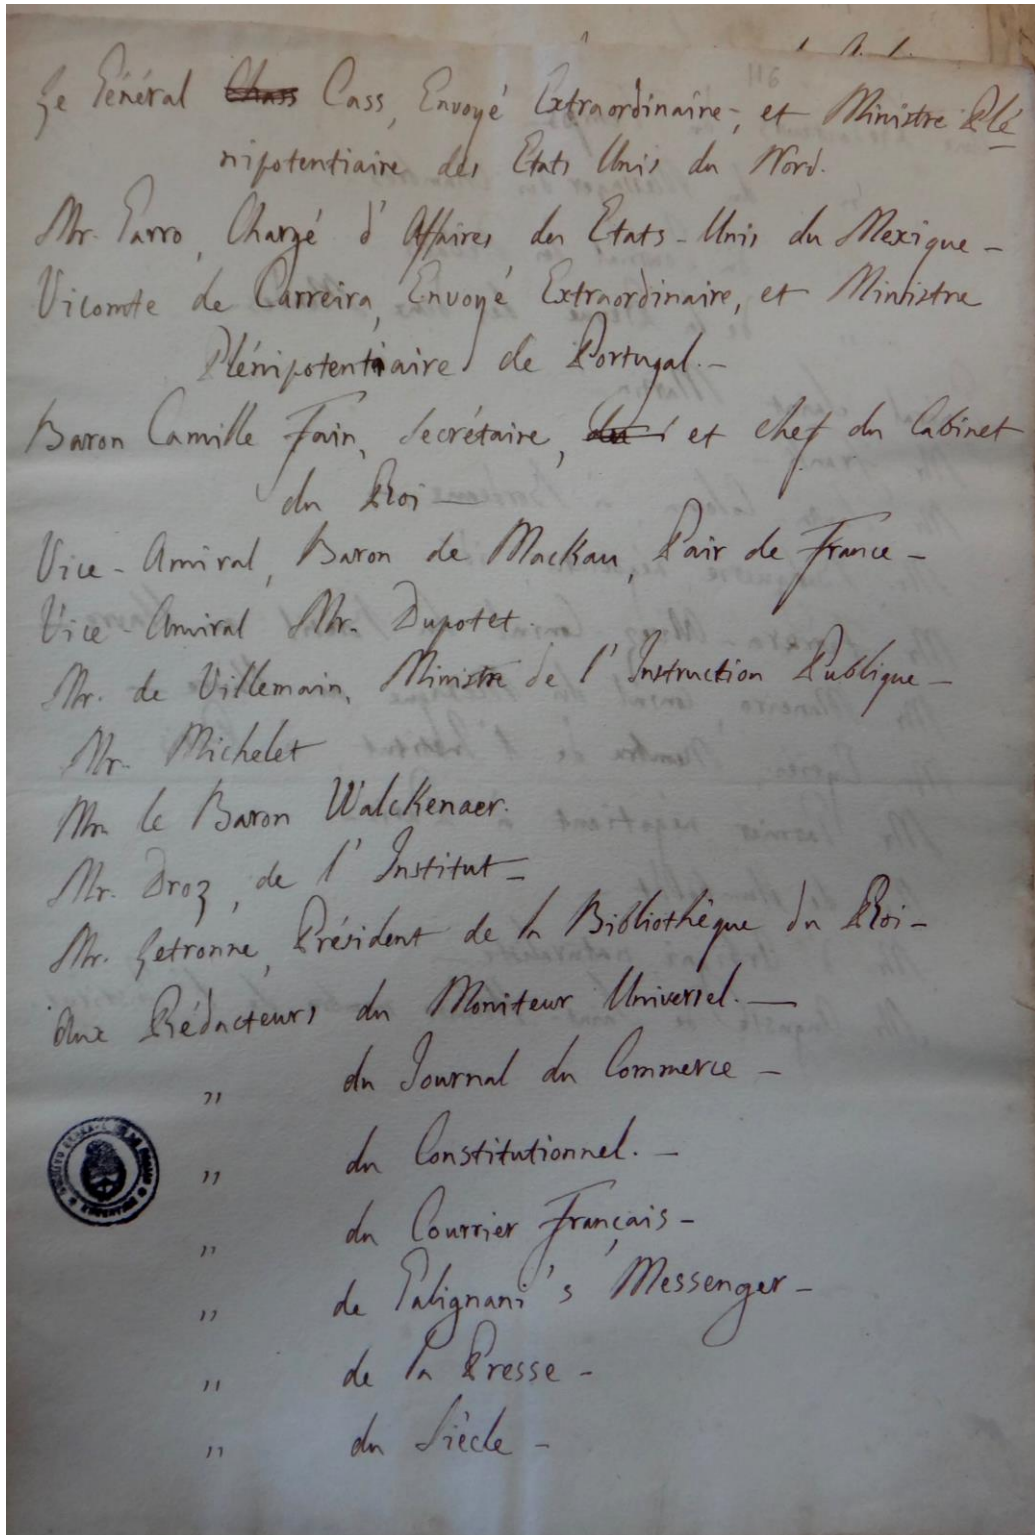 Le Général Chass Cass, Envoyé Extraordinaire, et Ministre Plé
nipotentiaire des Etats Unis du Nord.
Mr. Garro, Chargé d'Affaires des Etats-Unis du Mexique -
Vicomte de Carreira, Envoyé Extraordinaire, et Ministre
Plénipotentiaire de Portugal. -
Baron Camille Fain, Secrétaire, et chef du Cabinet
du Roi -
Vice-Amiral, Baron de Mackau, Pair de France -
Vice-Amiral Mr. Dupotet.
Mr. de Villemain, Ministre de l'Instruction Publique -
Mr. Michelet
Mr. le Baron Walckenaer.
Mr. Droz, de l'Institut -
Mr. Letronne, Président de la Bibliothèque du Roi -
Aux Rédacteurs du Moniteur Universel. -
" du Journal du Commerce -
" du Constitutionnel. -
" du Courrier Français -
" de Galignani's Messenger -
" de la Presse -
" du Siècle -